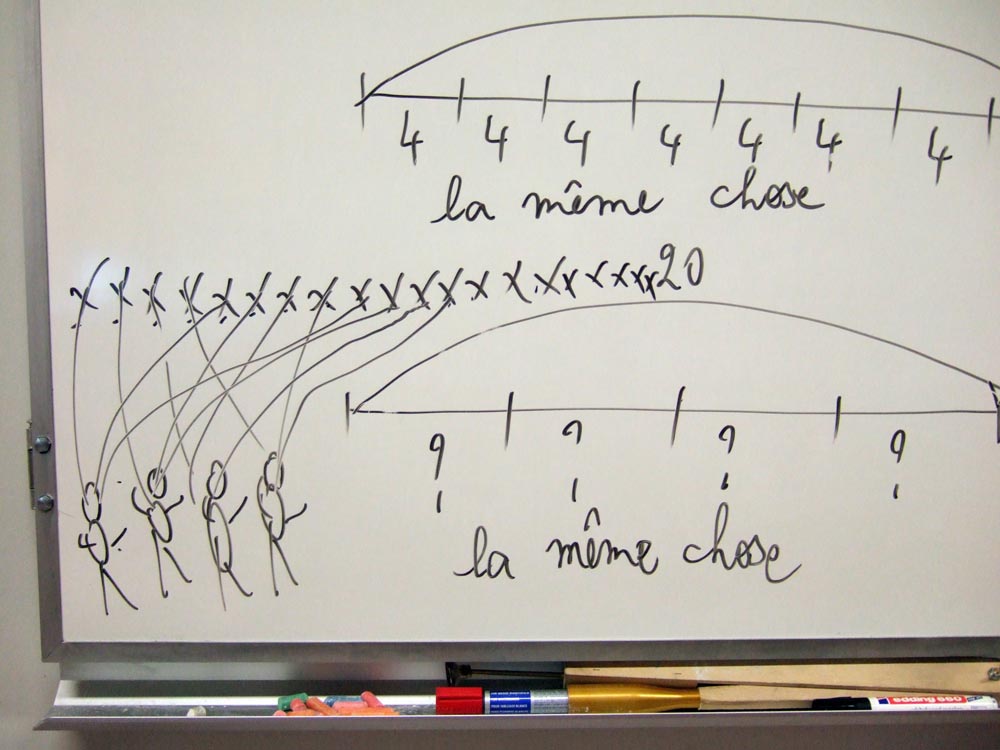 4 4 4 4 4 4 4
la même chose
x x x x x x x x x x x x x x x x x x x x 20
? ? ? ?
la même chose
edding 660